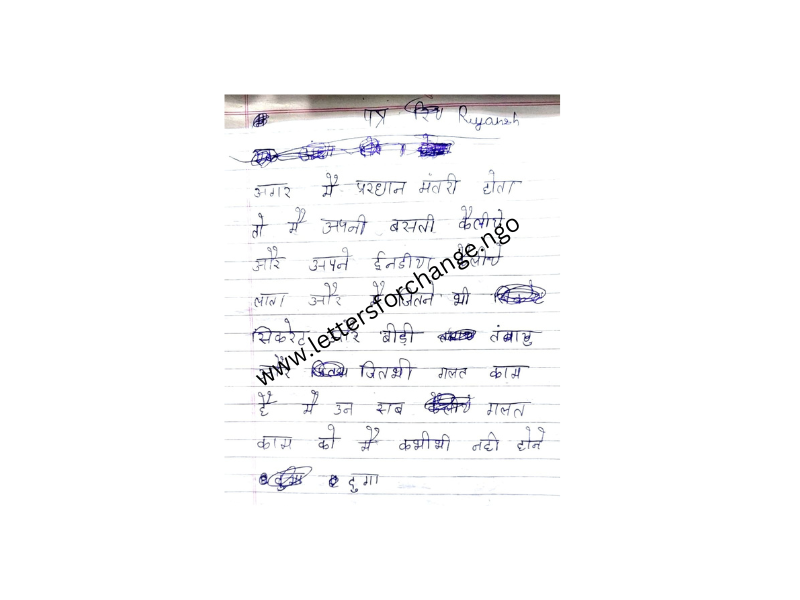 पत्र Riyansh
अगर मैं प्ररधान मंतरी होता
तो मैं अपनी बसती कैलीये
और अपने ईनडीया कैलीये
लाता और मैं जितने भी
सिकरेट और बीड़ी तंबाचु
और जितभी गलत काम
है मैं उन साब गलत
काम को मैं कभीभी नही होने
दुगा
www.lettersforchange.ngo